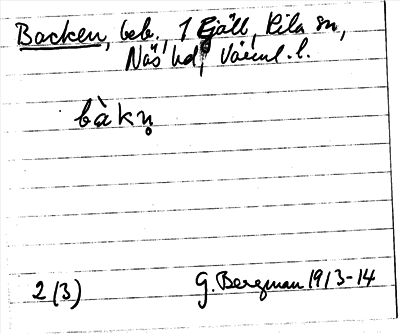 Backen, beb. 1 Fjäll, Kila sn,
Näs hd, Värml. l.
bàkn̥
2 (3)
G. Bergman 1913-14